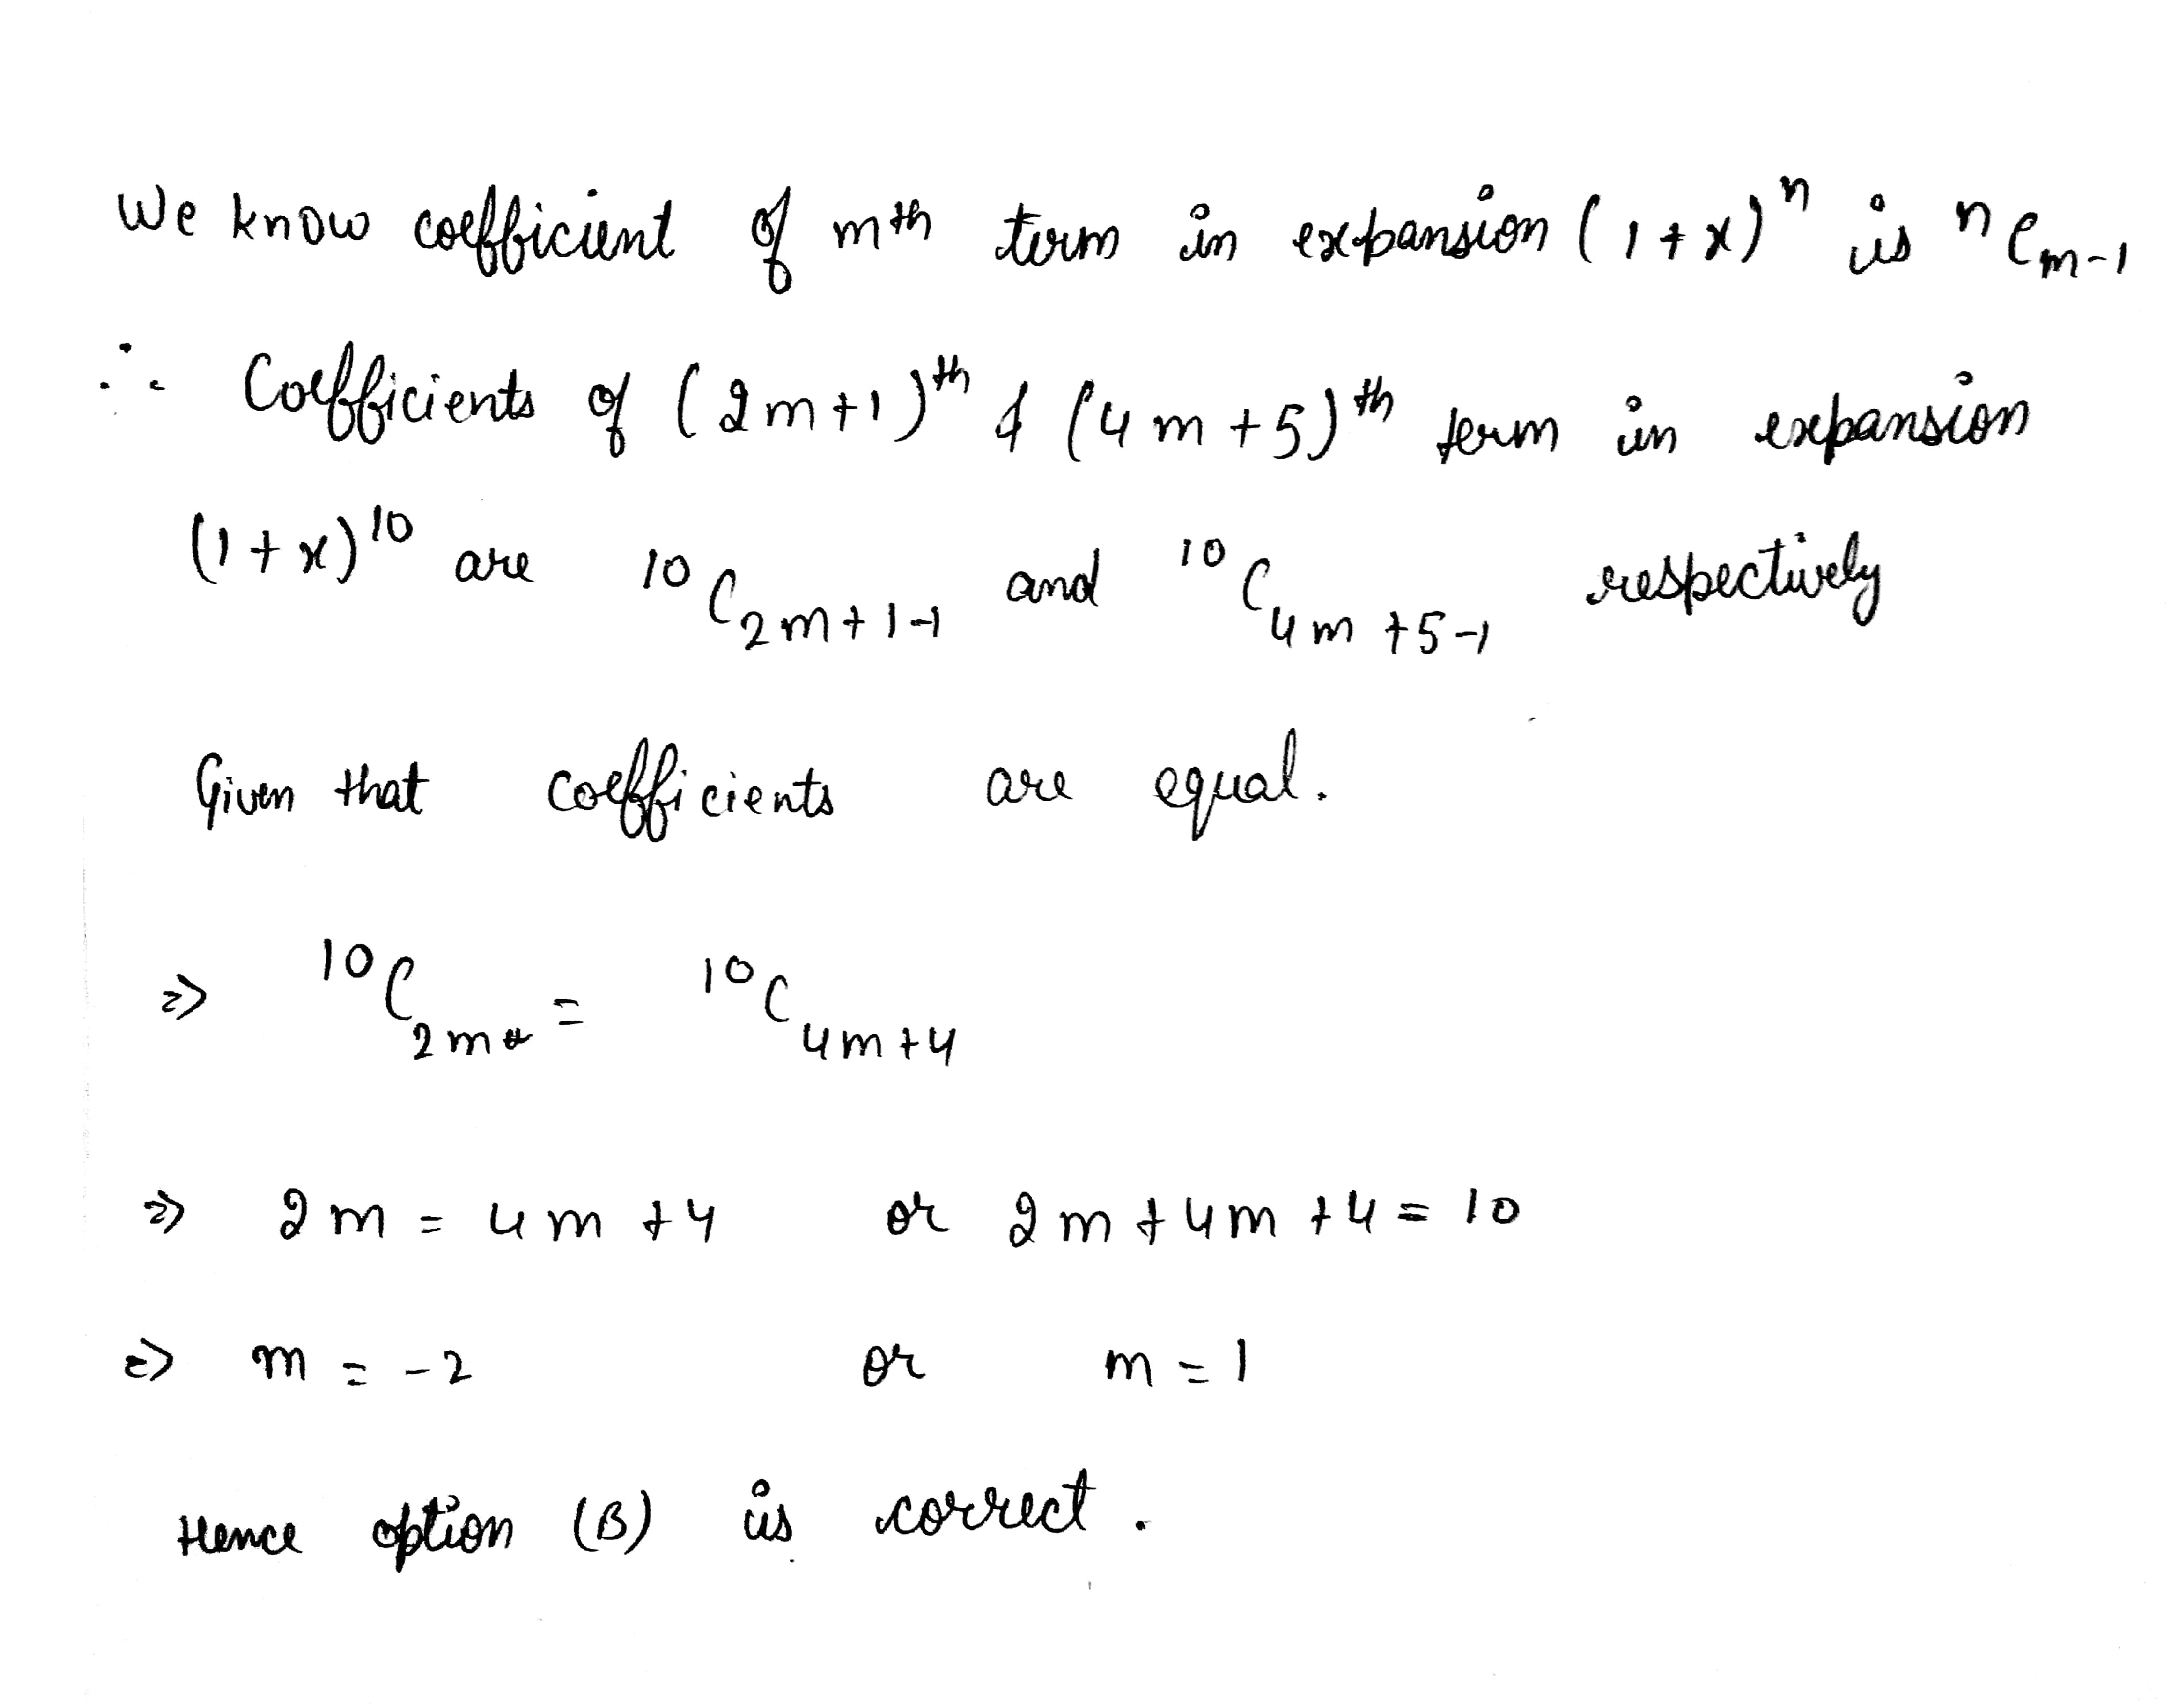 We know coefficient of mth term in expansion (1+x)ⁿ is ⁿCₘ₋₁
∴ Coefficients of (2m+1)ᵗʰ & (4m+5)ᵗʰ term in expansion
(1+x)¹⁰ are ¹⁰C₂ₘ₊₁₋₁ and ¹⁰C₄ₘ₊₅₋₁ respectively
Given that coefficients are equal.
⇒ ¹⁰C₂ₘ = ¹⁰C₄ₘ₊₄
⇒ 2m = 4m+4 or 2m+4m+4 = 10
⇒ m = -2 or m = 1
Hence option (B) is correct.